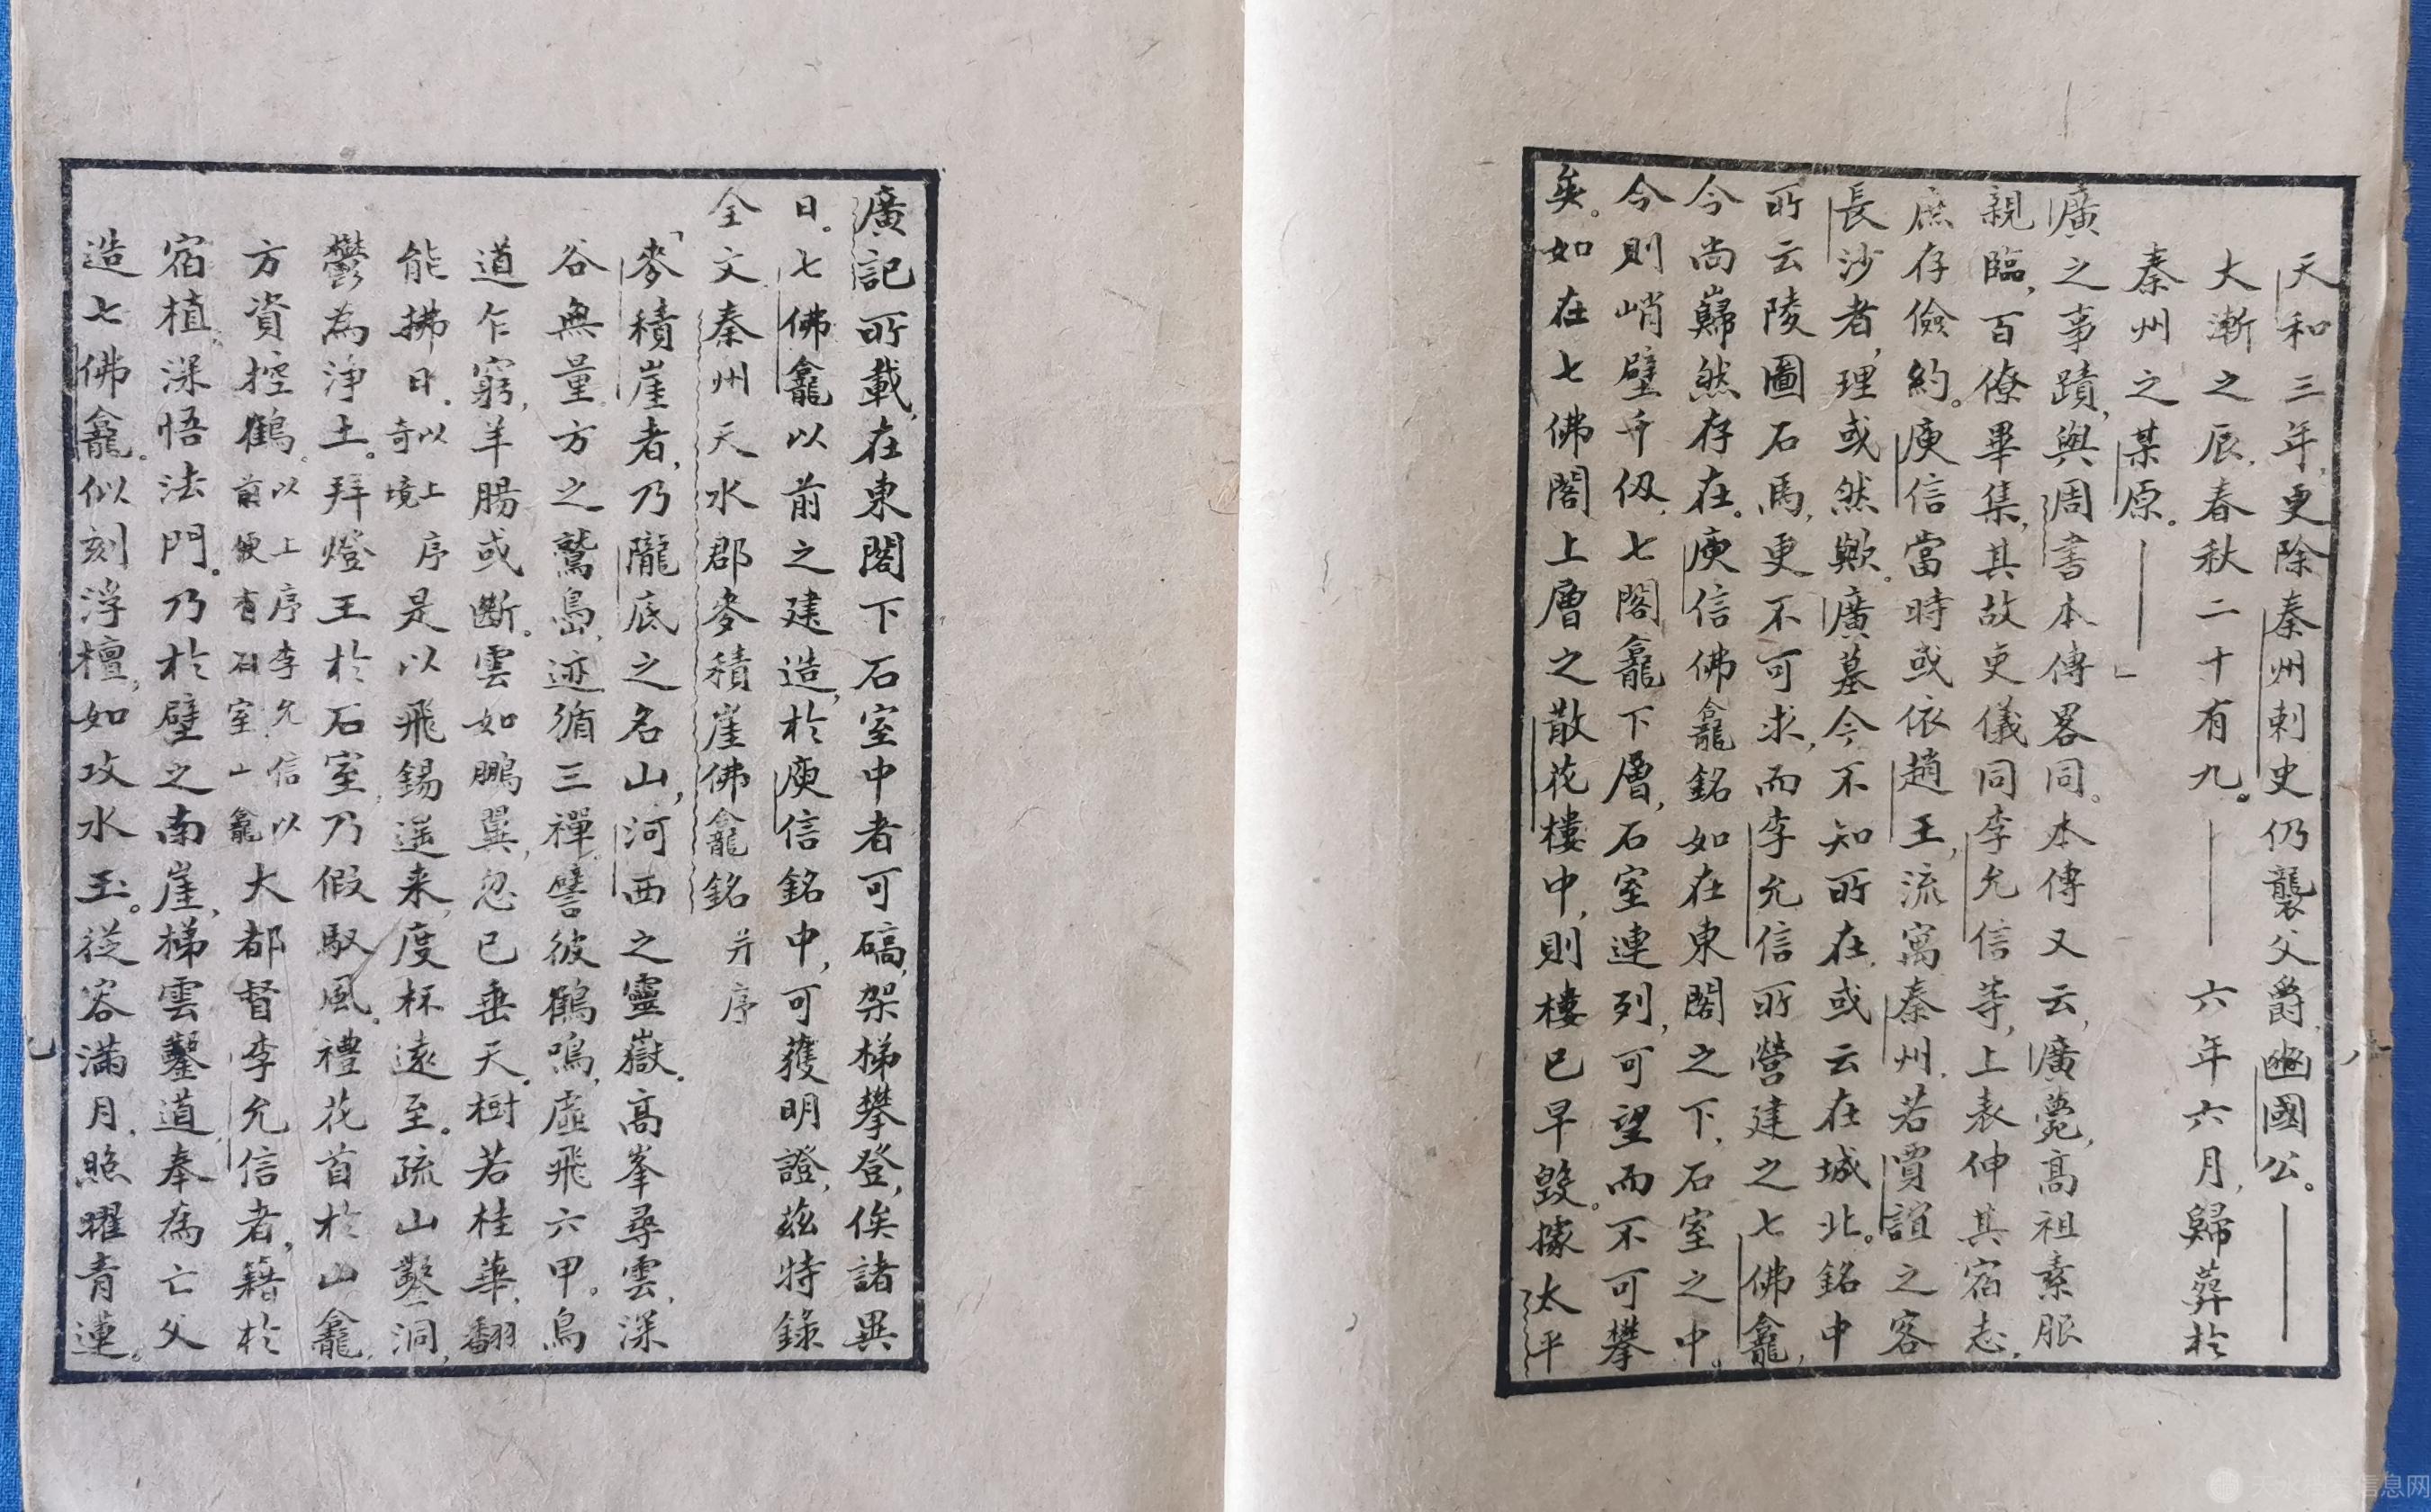 天和三年，更除秦州刺史仍襲父爵，豳國公。——
大漸之辰，春秋二十有九。——六年六月，歸葬於
秦州之某原。——」
廣之事蹟，與周書本傳畧同。本傳又云，廣薨，高祖素服
親臨，百僚畢集，其故吏儀同李允信等，上表伸其宿志，
庶存儉約。庾信當時或依趙王，流寓秦州，若賈誼之客
長沙者，理或然歟。廣墓今不知所在，或云在城北。銘中
所云陵圖石馬，更不可求，而李允信所營建之七佛龕，
今尚巋然存在。庾信佛龕銘如在東閣之下，石室之中。
今則峭壁千仭，七閣龕下層，石室連列，可望而不可攀
矣。如在七佛閣上層之散花樓中，則樓已早毀。據太平
廣記所載，在東閣下石室中者可碻，架梯攀登，俟諸異
日。七佛龕以前之建造，於庾信銘中，可獲明證，茲特錄
全文秦州天水郡麥積崖佛龕銘 并序
「麥積崖者，乃隴底之名山，河西之靈嶽。高峯尋雲，深
谷無量。方之鷲島，迹遁三禪。譬彼鶴鳴，虛飛六甲。鳥
道乍窮，羊腸或斷。雲如鵬翼，忽已垂天。樹若桂華，翻
能拂日。以上序奇境是以飛錫遥来，度杯遠至。疏山鑿洞，
鬱為淨土。拜燈王於石室，乃假馭風。禮花首於山龕，
方資控鶴。以上序李允信以前便有石室山龕大都督李允信者，籍於
宿植，深悟法門。乃於壁之南崖，梯雲鑿道，奉為亡父
造七佛龕。似刻浮檀，如攻水玉。從容滿月，照曜青連。
八
九